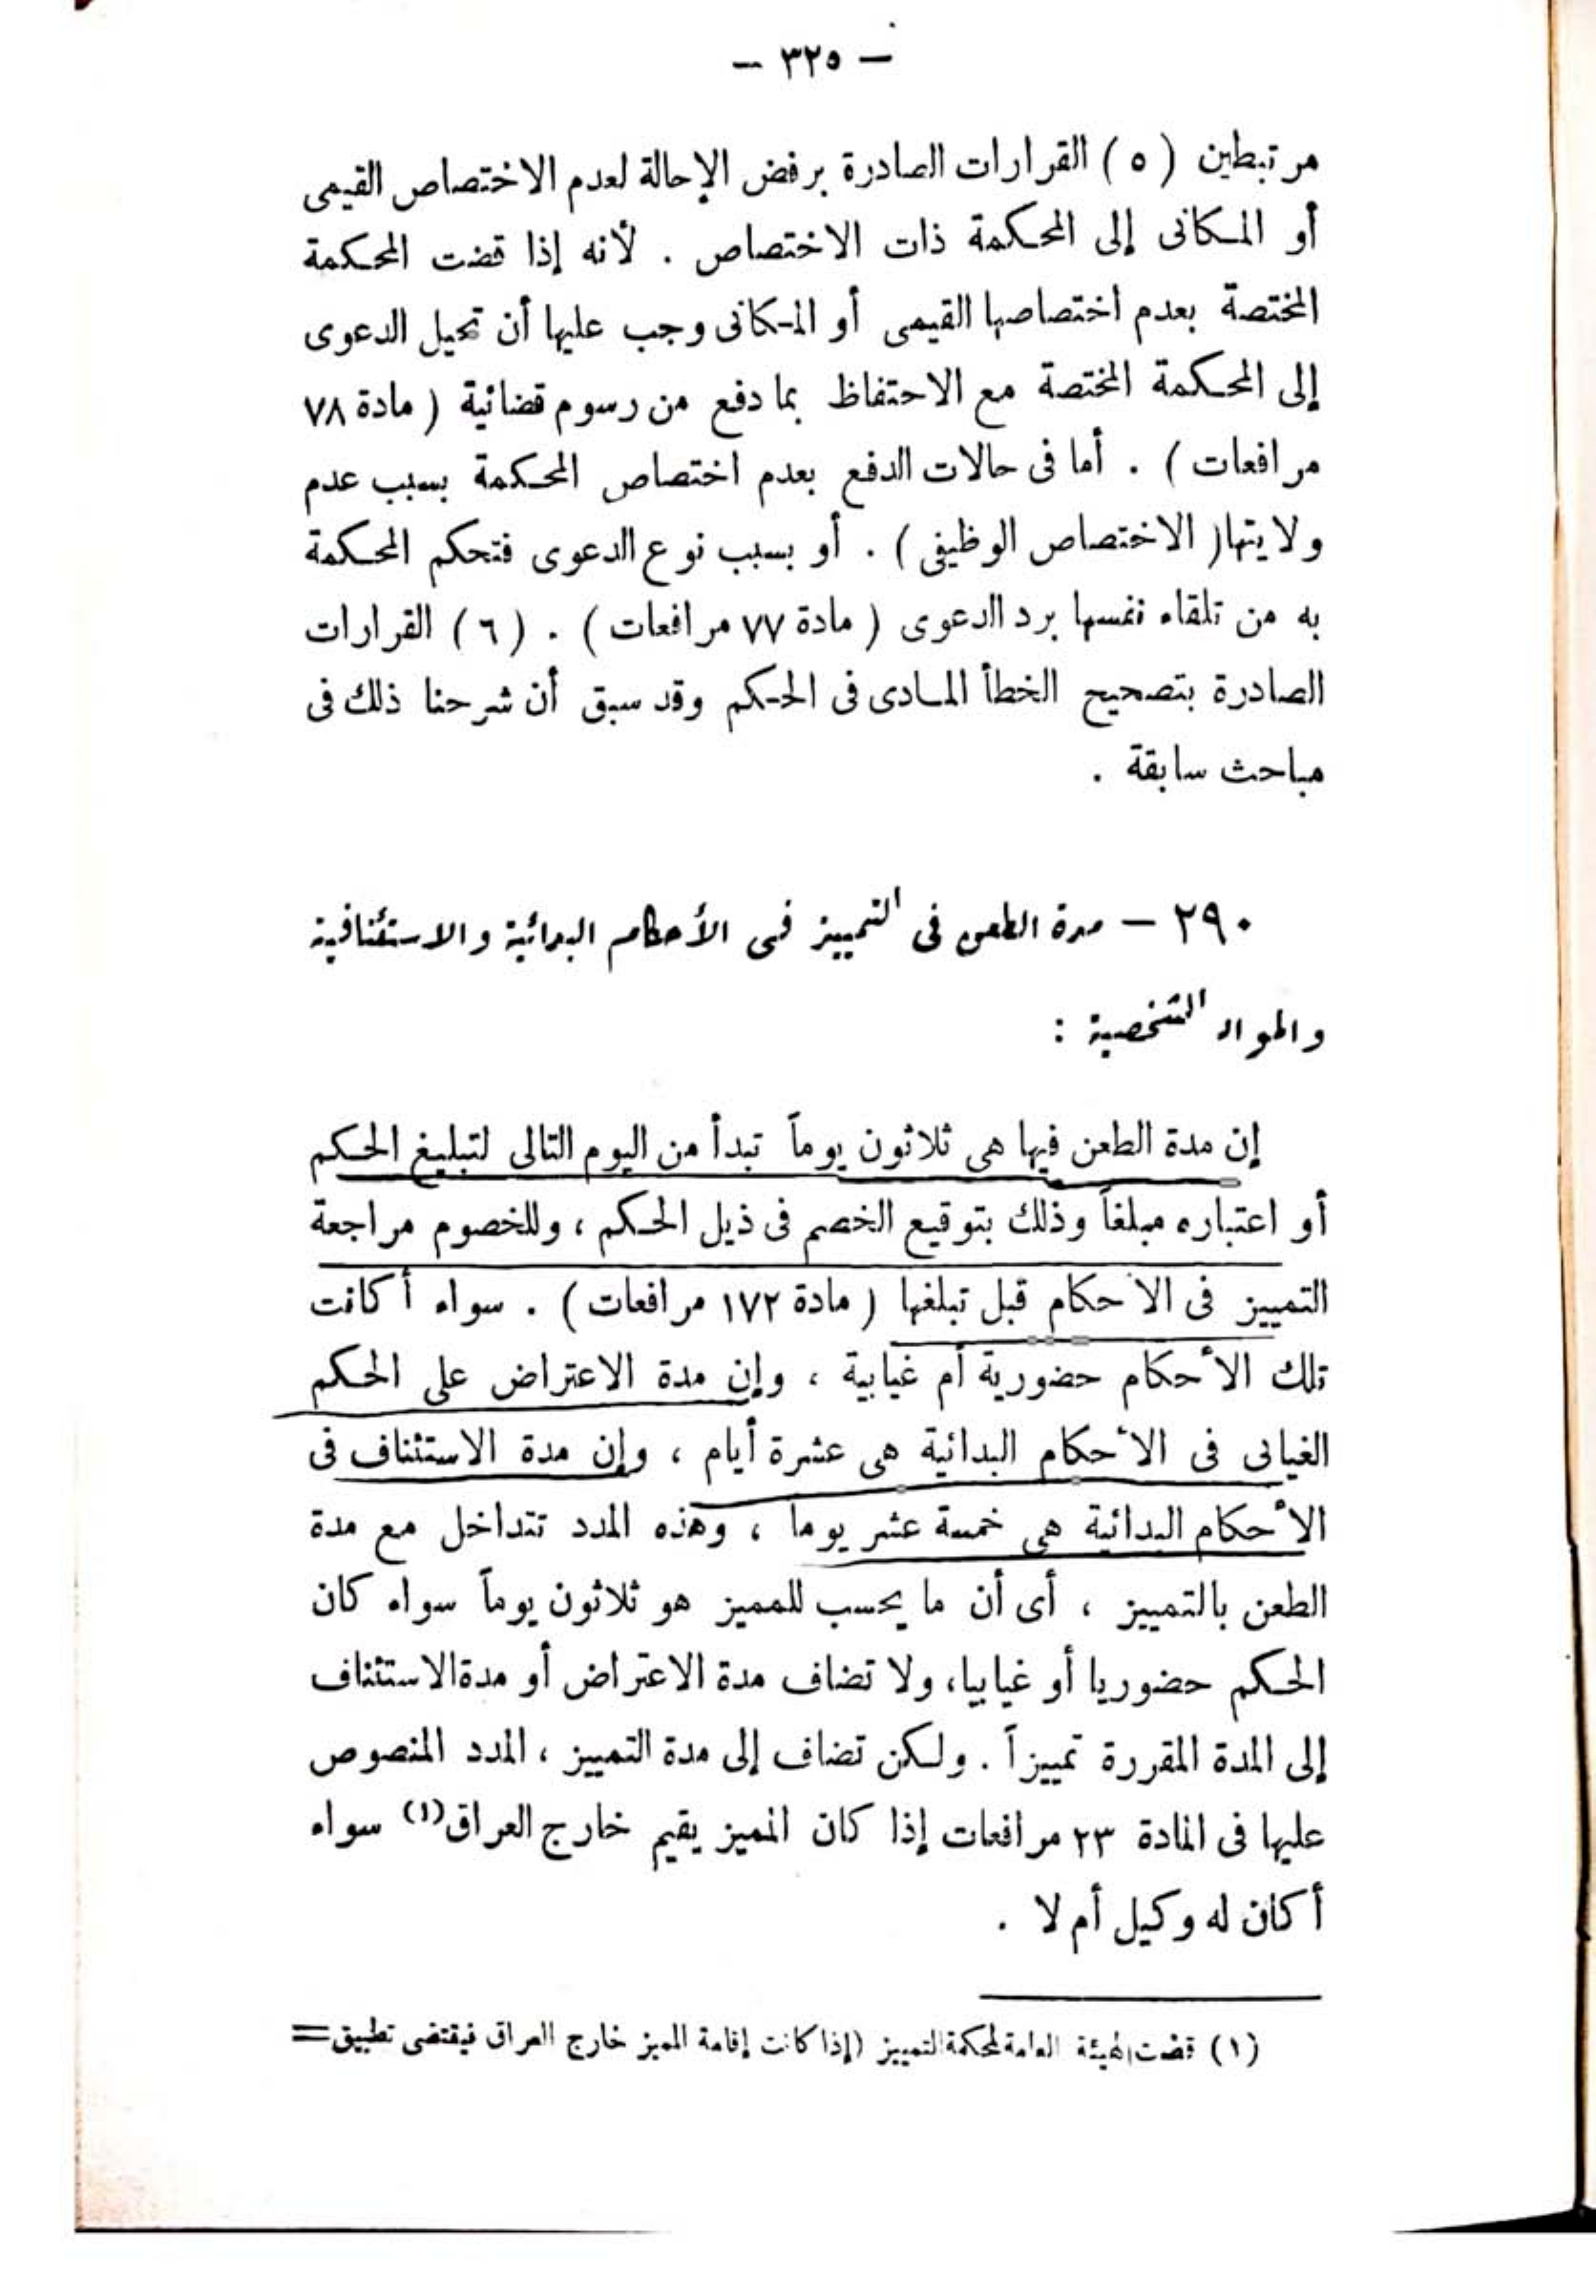 — ٣٢٥ —
مرتبطين ( ٥ ) القرارات الصادرة برفض الإحالة لعدم الاختصاص القيمى
أو المكانى إلى المحكمة ذات الاختصاص . لأنه إذا قضت المحكمة
المختصة بعدم اختصاصها القيمى أو المكانى وجب عليها أن تحيل الدعوى
إلى المحكمة المختصة مع الاحتفاظ بما دفع من رسوم قضائية ( مادة ٧٨
مرافعات ) . أما فى حالات الدفع بعدم اختصاص المحكمة بسبب عدم
ولايتها ( الاختصاص الوظيفى ) . أو بسبب نوع الدعوى فتحكم المحكمة
به من تلقاء نفسها برد الدعوى ( مادة ٧٧ مرافعات ) . ( ٦ ) القرارات
الصادرة بتصحيح الخطأ المادى فى الحكم وقد سبق أن شرحنا ذلك فى
مباحث سابقة .
٢٩٠ — مدة الطعن فى التمييز فى الأحكام البدائية والاستئنافية
والمواد الشخصية :
إن مدة الطعن فيها هى ثلاثون يوماً تبدأ من اليوم التالى لتبليغ الحكم
أو اعتباره مبلغاً وذلك بتوقيع الخصم فى ذيل الحكم ، وللخصوم مراجعة
التمييز فى الأحكام قبل تبلغها ( مادة ١٧٢ مرافعات ) . سواء أكانت
تلك الأحكام حضورية أم غيابية ، وإن مدة الاعتراض على الحكم
الغيابى فى الأحكام البدائية هى عشرة أيام ، وإن مدة الاستئناف فى
الأحكام البدائية هى خمسة عشر يوما ، وهذه المدد تتداخل مع مدة
الطعن بالتمييز ، أى أن ما يحسب للمميز هو ثلاثون يوماً سواء كان
الحكم حضوريا أو غيابيا ، ولا تضاف مدة الاعتراض أو مدة الاستئناف
إلى المدة المقررة تمييزاً . ولكن تضاف إلى مدة التمييز ، المدد المنصوص
عليها فى المادة ٢٣ مرافعات إذا كان المميز يقيم خارج العراق(١) سواء
أكان له وكيل أم لا .
(١) قضت الهيئة العامة لمحكمة التمييز (إذا كانت إقامة المميز خارج العراق فيقتضى تطبيق =